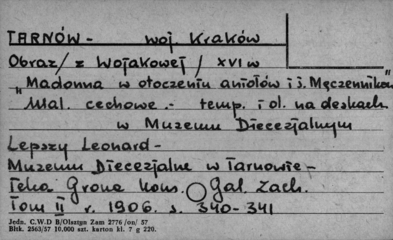 TARNÓW - woj. Kraków
Obraz / z Wojakowej / XVI w
"Madonna w otoczeniu aniołów i ś. Męczenników"
Mal. cechowe - temp. i ol. na deskach
w Muzeum Diecezjalnym
Lepszy Leonard -
Muzeum Diecezjalne w Tarnowie -
Teka Grona Kons. Gal. Zach.
Tom II r. 1906. s. 340-341
Jedn. C.W.D B/Olsztyn Zam 2776 /on/ 57
Błsk. 2563/57 10.000 szt. karton kl. 7 g 220.